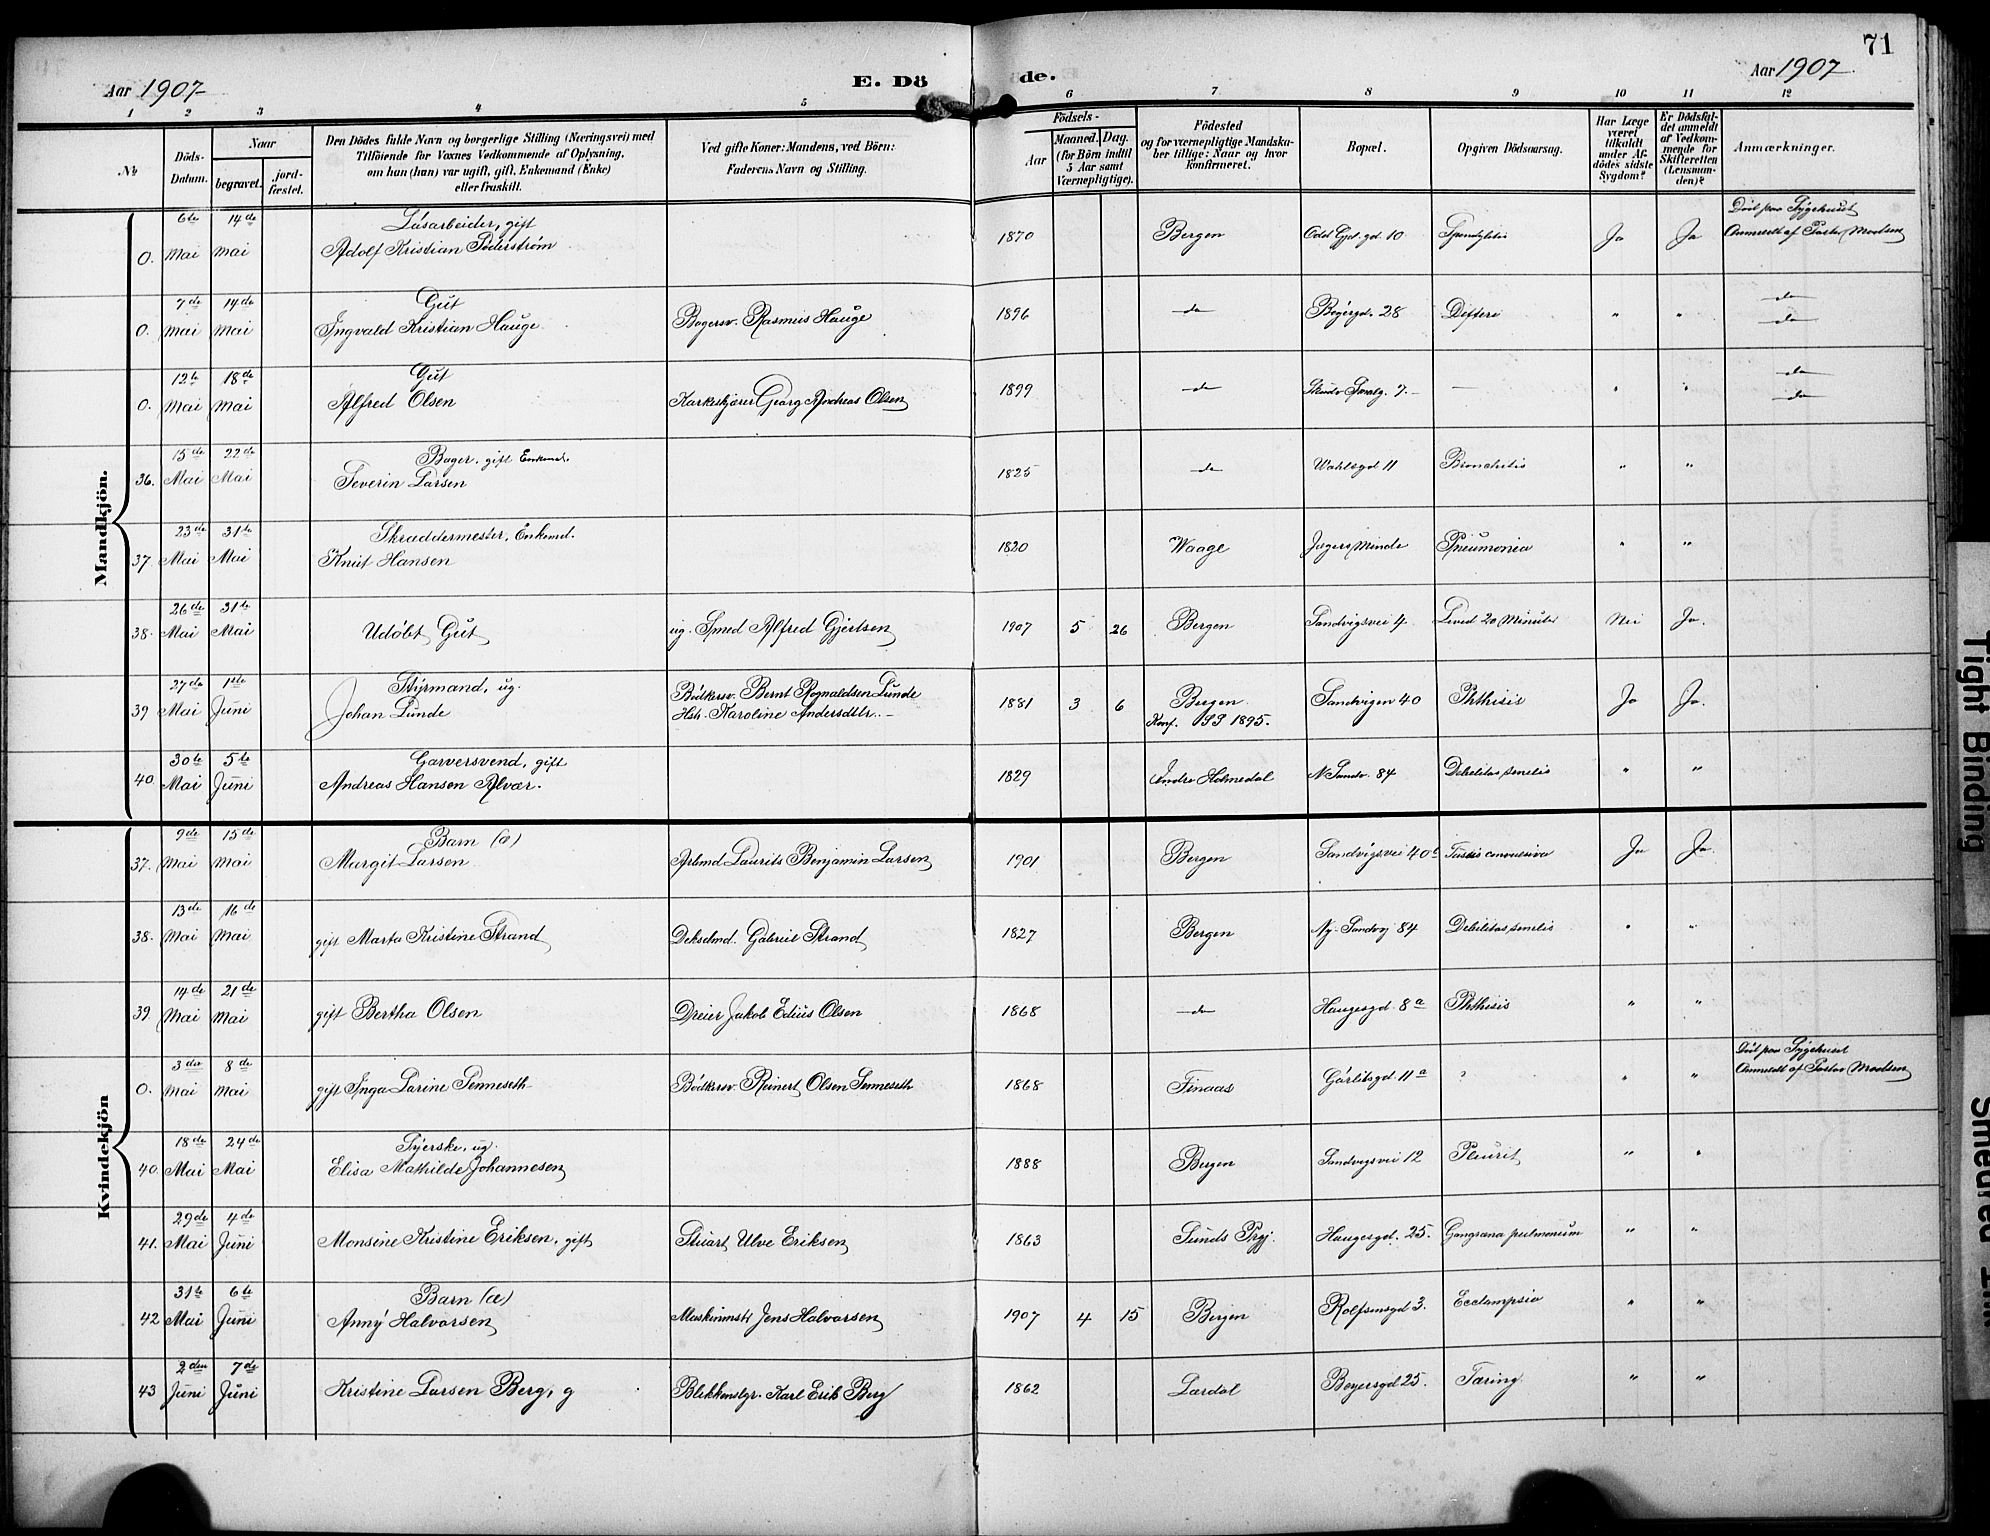 71
Aar 1907
E. Dö de.
Aar 1907
1 2 3 4 5 6 7 8 9 10 11 12
No
Döds-Datum.
Naar
begravet.
jord-fæstet.
Den Dödes fulde Navn og borgerlige Stilling (Næringsvei) med
Tilföiende for Voxnes Vedkommende af Oplysning,
om han (hun) var ugift, gift, Enkemand (Enke)
eller fraskilt.
Ved gifte Koner: Mandens, ved Börn:
Faderens Navn og Stilling.
Födsels-
Aar
Maaned. Dag.
(for Börn indtil
5 Aar samt
Værnepligtige).
Födested
og for værnepligtige Mandska-
ber tillige: Naar og hvor
konfirmeret.
Bopæl.
Opgiven Dödsaarsag.
Har Læge
været
tilkaldt
under Af-
dödes sidste
Sygdom?
Er Dödsfal-
det anmeldt
af Vedkom-
mende for
Skifteretten
(Lensman-
den)?
Anmærkninger.
Mandkjön.
0. 6te Mai 14de Mai Løsarbeider, gift
Adolf Kristian Søderstrøm 1870 Bergen 10 Ja Ja Död paa Sygehuset
Anmeldt af Pastor
0. 7de Mai 14de Mai Gut
Ingvald Kristian Hauge Bagersv. Rasmus Hauge 1896 do 28 Difteri " " do
do
0. 12te Mai 18de Mai Gut
Alfred Olsen Korkeskjærer Georg Andreas Olsen 1899 do 7. — " " do
do
36. 15de Mai 22de Mai Bager, gift Enkemd.
Severin Larsen 1825 do 11 Bronchitis " "
37. 23de Mai 31te Mai Skræddermester, Enkemd.
Knut Hansen 1820 Waage Jægers Minde Pneumonia " "
38. 26de Mai 31te Mai Udöbt Gut ug. Smed Alfred Gjertsen 1907 5 26 Bergen Sandvigsvei 4. Levd 20 Minuter Nei Ja.
39 27de Mai 1ste Juni Styrmand, ug.
Johan Lunde Bødkersv. Bernt Rognaldsen Lunde
Hstr. Karoline Andersdtr. 1881 3 6 Bergen.
Konf. 1895. Sandvigen 40 Phthisis Ja Ja.
40. 30te Mai 5te Juni Garversvend, gift
Andreas Hansen Alvær. 1829 Indre Holmedal N. Sandv. 84 Debilitas senilis " "
Kvindekjön
37. 9de Mai 15de Mai Barn (æ)
Margit Larsen Arbmd Laurits Benjamin Larsen 1901 Bergen Sandvigsvei 40b Tussis convulsiva Ja Ja.
38. 13de Mai 16de Mai gift Marta Kristine Strand Deksdmd. Gabriel Strand 1827 Bergen Ny-Sandv 84 Debilitas senilis " "
39. 14de Mai 21de Mai gift Bertha Olsen Dreier Jakob Edius Olsen 1868 do Haugesgd. 8a Phthisis " "
0. 3die Mai 8de Mai gift Inga Larine Senneseth Bødkersv. Reinert Olsen Senneseth 1868 Finaas 11a ? " " Död paa Sygehuset
Anmeldt af Pastor
40. 18de Mai 24de Mai Syerske, ug.
Elisa Mathilde Johannesen 1888 Bergen Sandvigsvei 12 Pleurit " "
41. 29de Mai 4de Juni Monsine Kristine Eriksen, gift Stuart Ulve Eriksen 1863 Sunds Prgj. Haugesgd. 25. Gangræna pulmonum " "
42 31te Mai 6te Juni Barn (æ)
Anny Halvorsen Maskinmstr Jens Halvorsen 1907 4 15 Bergen Rolfsensgd 3. Ecclampsia " "
43 2den Juni 7de Juni Kristine Larsen Berg, g Blikkenslgr. Karl Erik Berg 1862 Lærdal Beyersgd 25. Tæring " "
Tight Binding
Smeared Ink